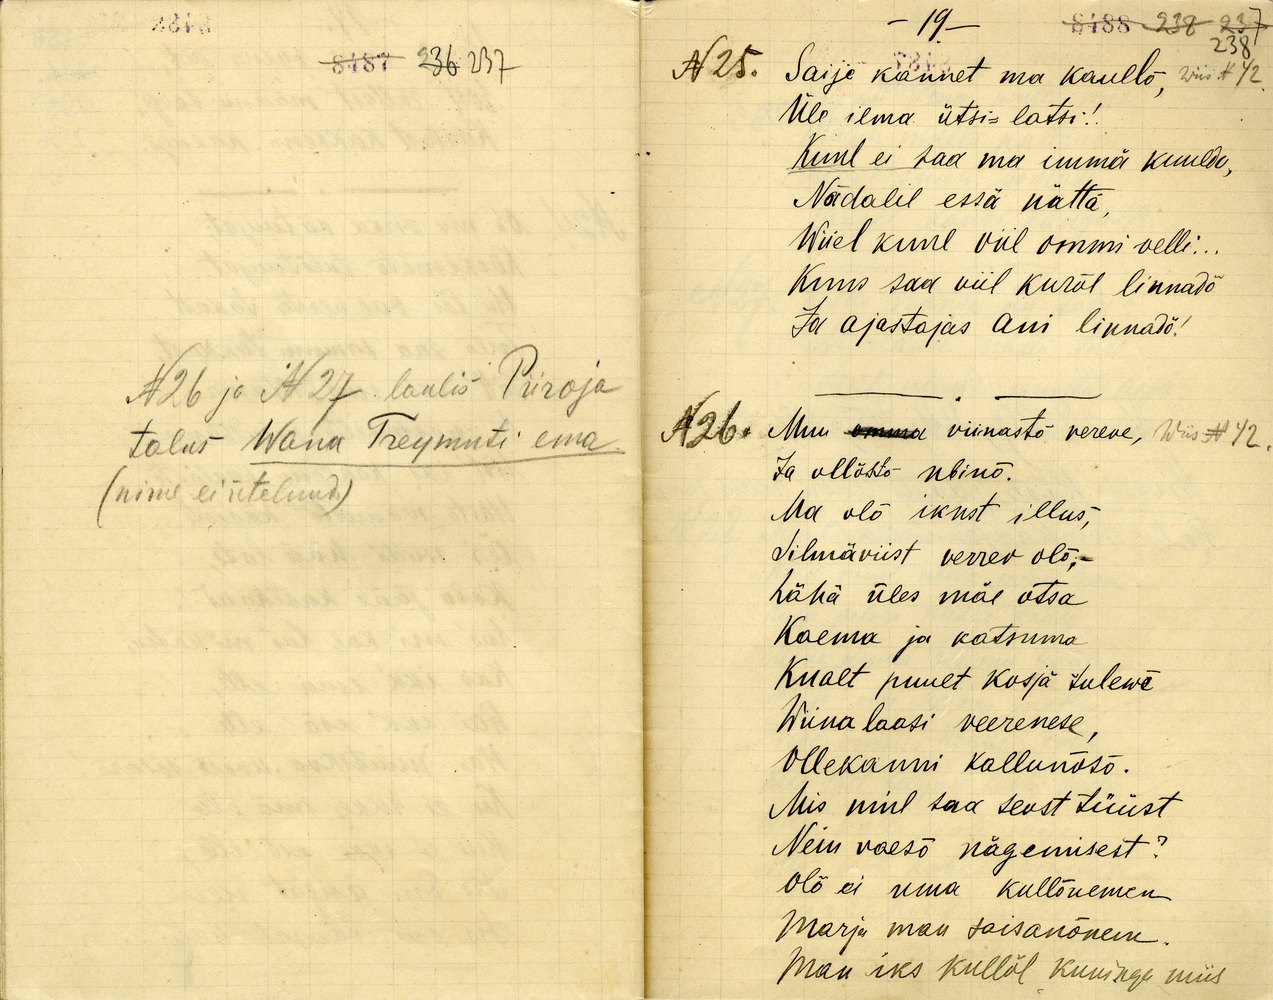 8487 236 237
N26 ja N27 laulis Piiroja
talus Wana Treymuti ema
(nime ei ütelnud)
-19-
8488 238 237
238
N25. Saije kannet ma kaullõ, Wiis N 42.
Üle ilma ütsi=latsi!
Kuul ei saa ma immä kuulda,
Nädalil essä nättä,
Wiiel kuul viil ommi velli...
Kuus saa viil kurõl linnadõ
Ja ajastajas ani linnadõ!
N26. Muu omma viinastõ vereve, Wiis N 42.
Ja ollõstõ ubinõ.
Ma olõ ikust illus,
Silmäviist verrev olõ,-
Lähä üles mäe otsa
Kaema ja katsuma
Kualt puult kosjä tulewe
Wiina laasi veerenese,
Ollekanni kallunõsõ.
Mis miul saa seost tüüst
Nein vaesõ nägemisest?
Olõ ei uma kullõnemen
Marja man saisanõnem.
Man iks kullõl kuninga miis